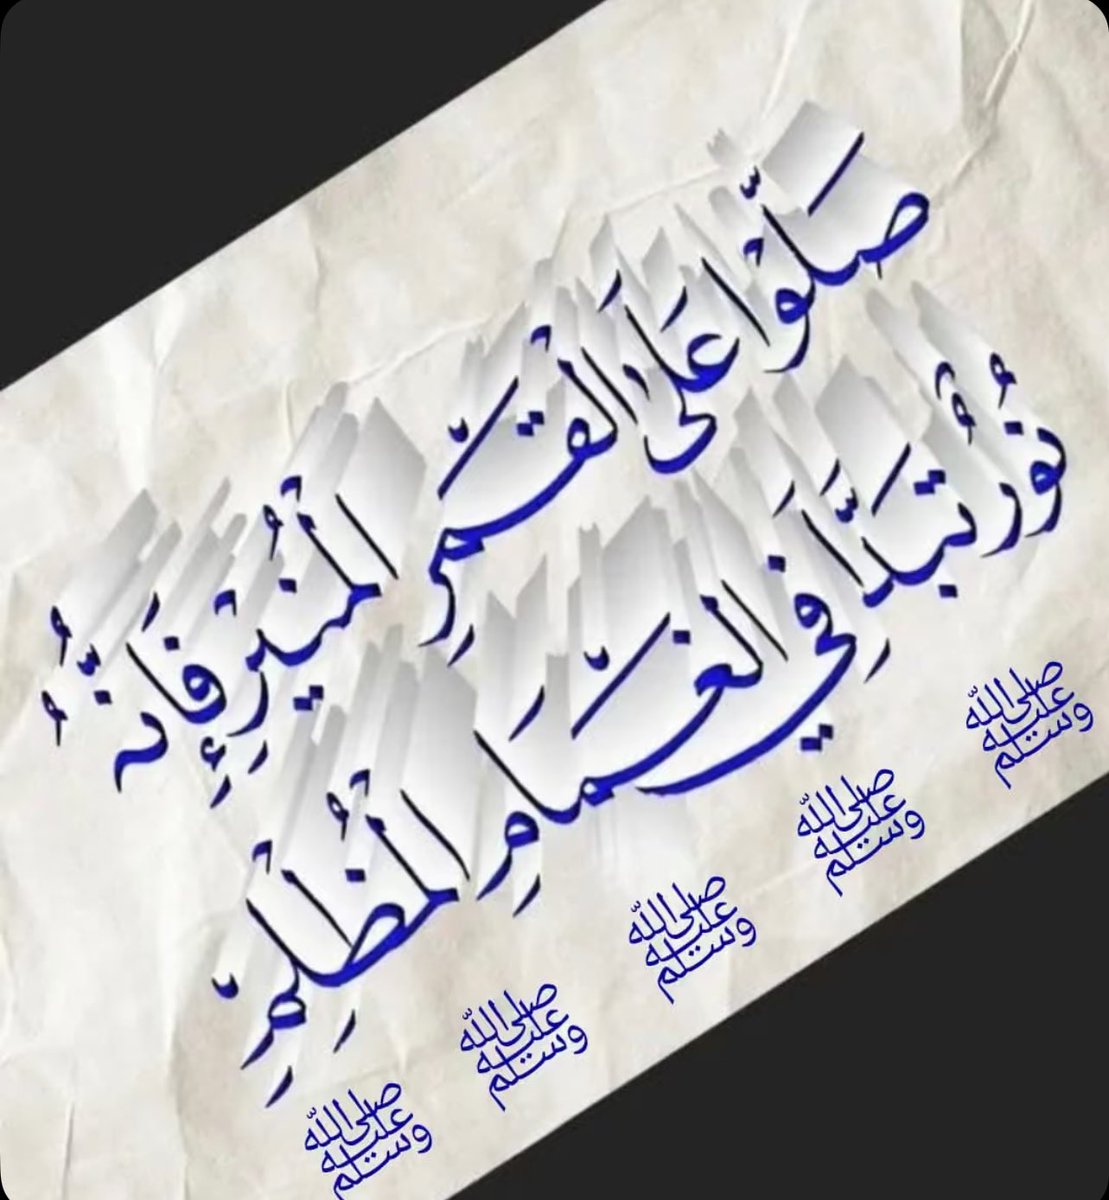 صَلَّوْا عَلَى الْقَمَرِ الْمُنِيرِ فَإِنَّهُ
نُورٌ تَبَدَّا فِي الْغَمَامِ الْمُظْلِمِ
صلى الله عليه وسلم
صلى الله عليه وسلم
صلى الله عليه وسلم
صلى الله عليه وسلم
صلى الله عليه وسلم